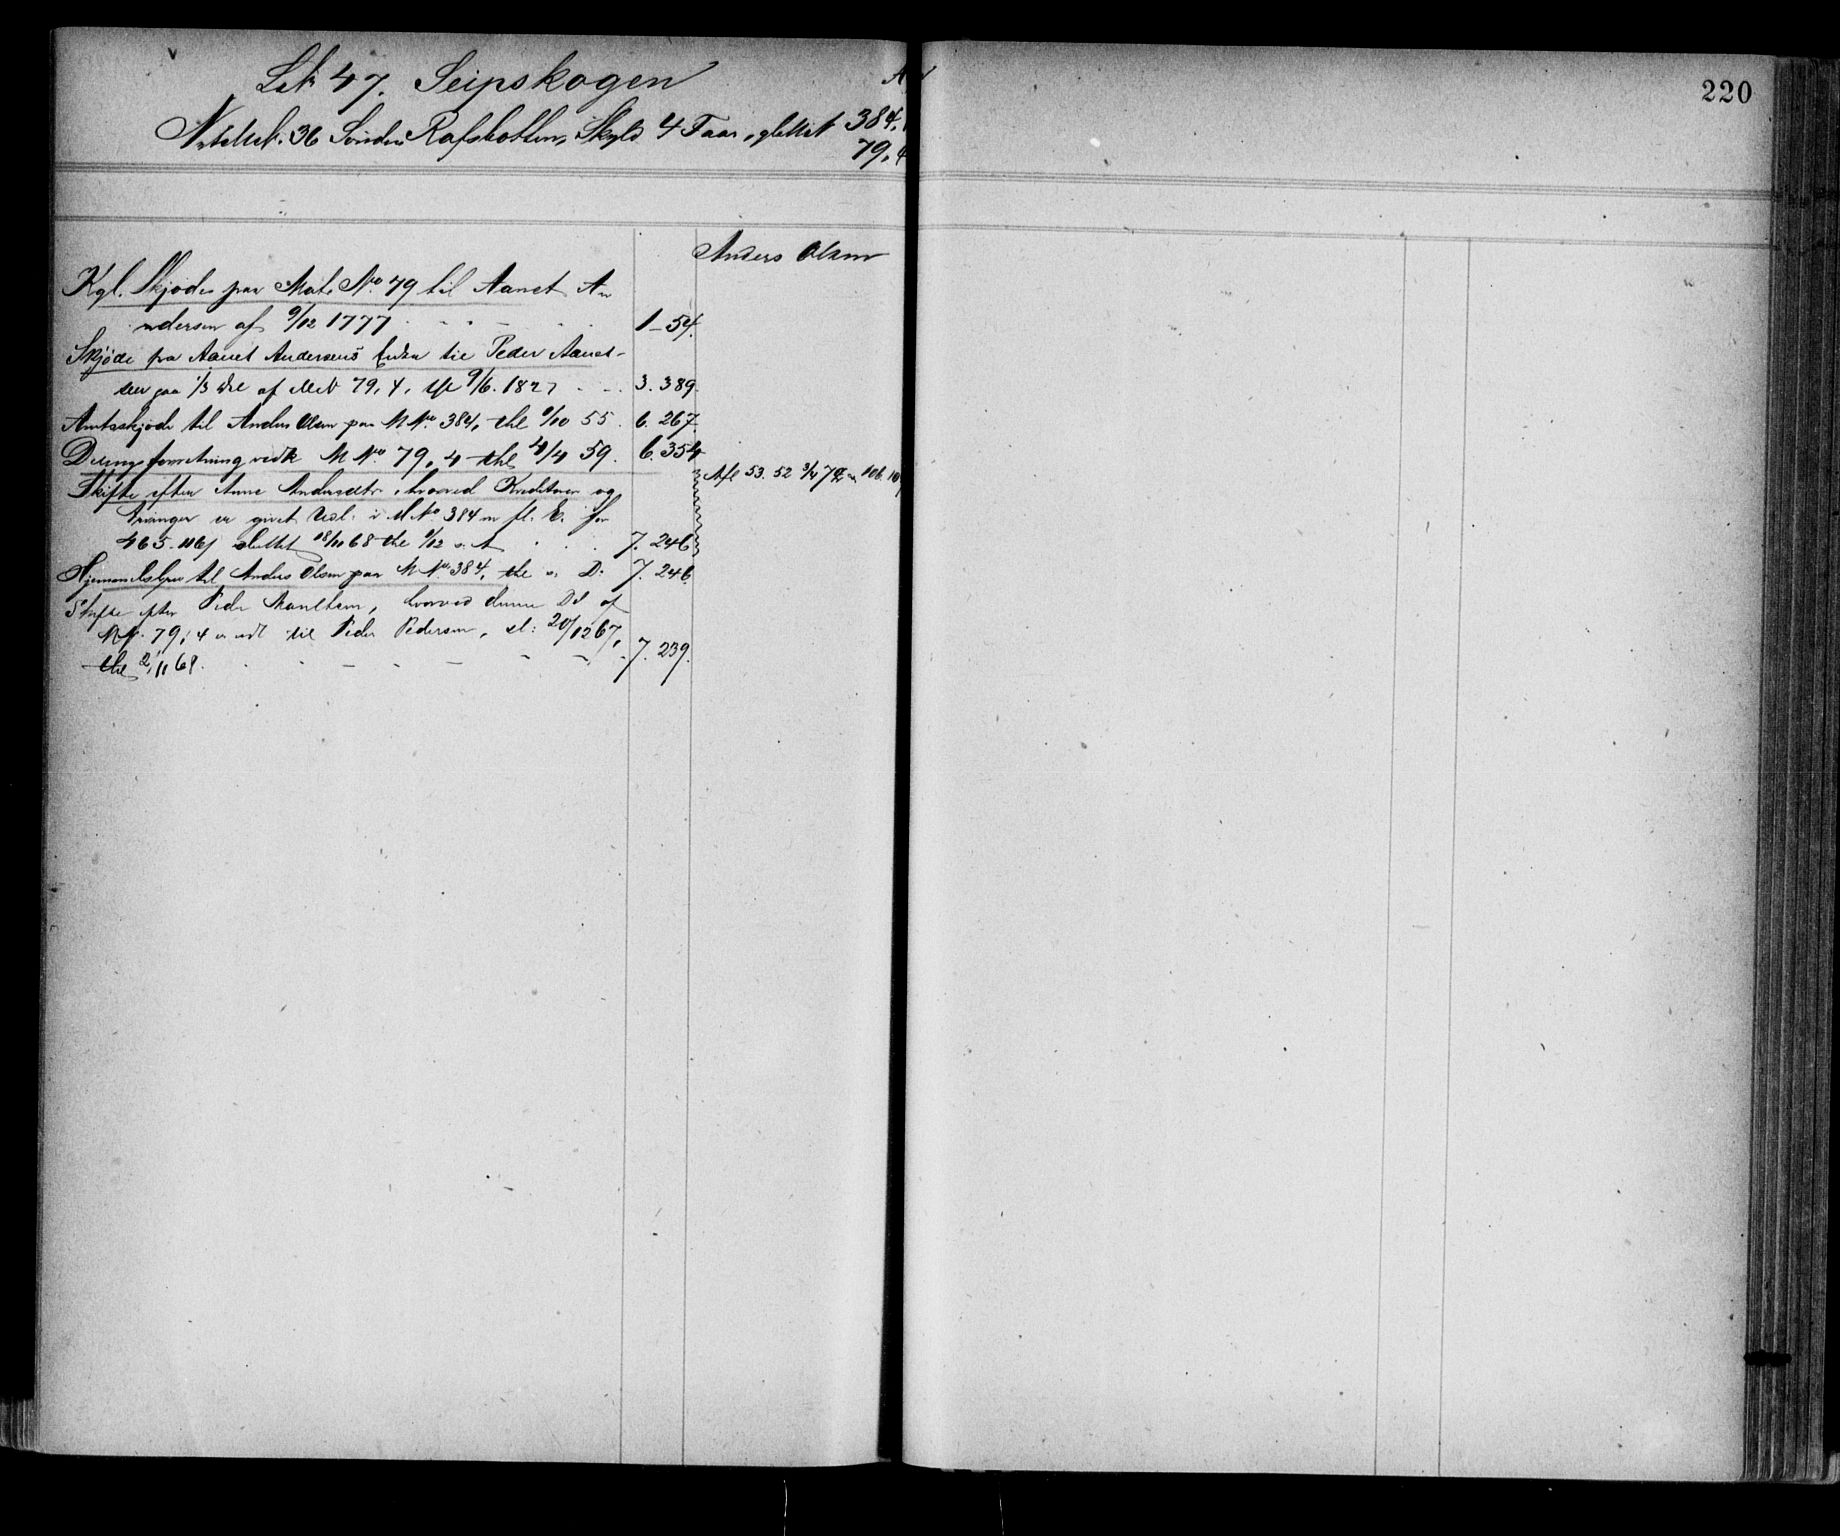 220
47. Seipskogen
36 Søndre Rafsbotten, Skyld 4 384,
79, 4
Anders Olsen
Kgl. Skjøde paa Mats No. 79 til Aanet An
ndersen af 9/12 1777 1-54.
Skjøde fra Aanet Andersens Enke til Peder Aanet-
sen paa 1/3 Del af MN 79, 4, 9/6. 1827 3. 389.
Amtsskjøde til Anders Olsen paa M No. 384, thl 55. 6. 267.
Delingsforretning vedk M No. 79, 4 thl 4/4 59. 6. 354
Afl 53. 52
Skifte efter Anne Andersdtr, hvorved Kreditorer og
Arvinger er givet Udl. i M No 384 m fl. E. for
465 sluttet 18/11 68 thl 9/12 s. A 7. 246
Hjemmelsbrev til Anders Olsen paa M No. 384, thl s. D. 7. 246.
Skifte efter Peder, hvorved denne Del af
MN. 79, 4 er udl til Peder Pedersen, sl: 20/12 67,
thl 2/11 68. 7. 239.